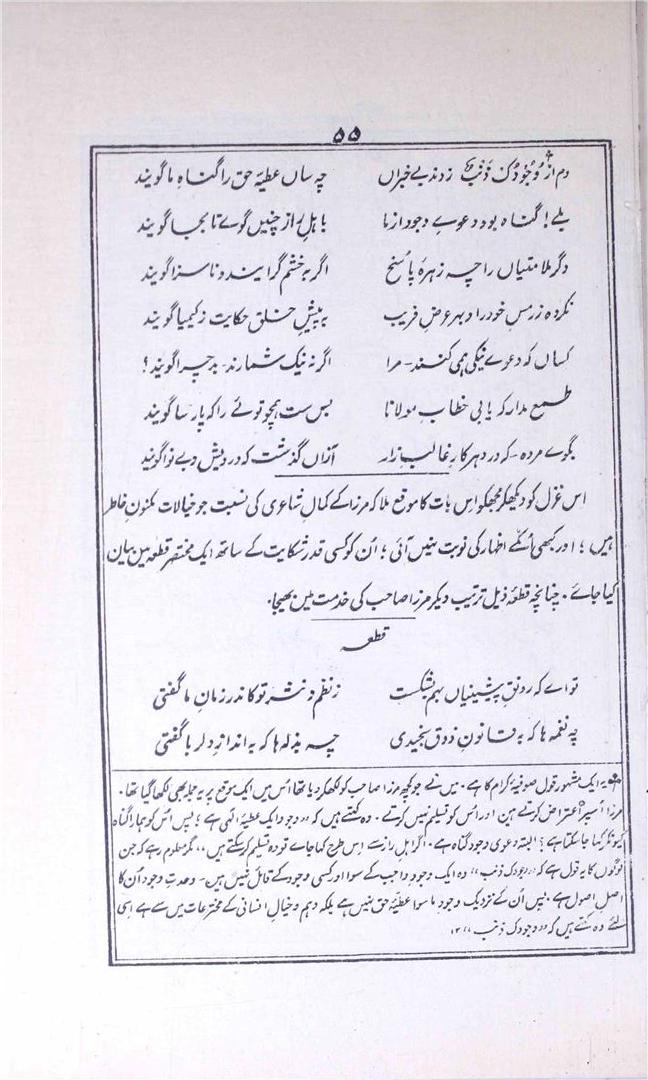 ۵۵
دم از وُجُودُکَ ذَنْبٌ زدند بے خبراں چہ ساں عطیۂ حق را گناہِ ما گویند
بلے! گناہ بود دعوےِ وجود از ما باہلِ راز چنیں گوے تا بجا گویند
دگر ملامتیاں را چہ زہرۂ پاسُخ اگر بہ خشم گرایند و ناسزا گویند
نکردہ زر مسِ خود را و بہر عرضِ فریب بہ پیشِ خلق حکایت ز کیمیا گویند
کساں کہ دعوےِ نیکی ہمی کنند۔ مرا اگر نہ نیک شمارند۔ بد چرا گویند؟
طمع مدار کہ یابی خطابِ مولانا بس ست ہمچو توئے را کہ پارسا گویند
بگوے مردہ۔ کہ در دہر کارِ غالبِ زار ازاں گذشت کہ درویش و بے نوا گویند
اس غزل کو دیکھکر مجھکو اس بات کا موقع ملا کہ مرزا کے کمالِ شاعری کی نسبت جو خیالات مکنونِ خاطر
ہیں؛ اور کبھی اُنکے اظہار کی نوبت نہیں آئی؛ اُن کو کسی قدر شکایت کے ساتھ ایک مختصر قطعہ میں بیان
کیا جائے۔ چنانچہ قطعۂ ذیل ترتیب دیکر مرزا صاحب کی خدمت میں بھیجا۔
قطعہ
تو اے کہ رونقِ پیشینیاں بہم بشکست ز نظم و نثر تو کاندر زمانِ ما گفتی
چہ نغمہ ہا کہ بہ قانونِ ذوق سنجیدی چہ بذلہ ہا کہ بہ اندازِ دلربا گفتی
یہ ایک مشہور قول صوفیۂ کرام کا ہے۔ میں نے جو کچھ مرزا صاحب کو لکھکر دیا تھا اُس میں ایک موقع پر یہ جملہ بھی لکھا گیا تھا۔
مرزا اُسپر اعتراض کرتے ہین اور اُس کو تسلیم نہیں کرتے۔ وہ کہتے ہیں کہ "وجود ایک عطیۂ الٰہی ہے؛ پس اُس کو ہمارا گناہ
کیونکر کہا جا سکتا ہے؟ البتہ دعویِ وجود گناہ ہے۔ اگر اہلِ راز سے اِس طرح کہا جائے تو وہ تسلیم کر سکتے ہیں"، مگر معلوم رہے کہ جن
لوگوں کا یہ قول ہے کہ "وجودک ذنب" وہ ایک وجودِ واجب کے سوا اور کسی وجود کے قائل نہیں ہیں۔ وحدتِ وجود اُن کا
اصل اصول ہے۔ پس اُن کے نزدیک وجودِ ما سوا عطیۂ حق نہیں ہے بلکہ وہم و خیالِ انسانی کے مخترعات میں سے ہے اِسی
لئے وہ کہتے ہیں کہ "وجودک ذنب" ۱۲